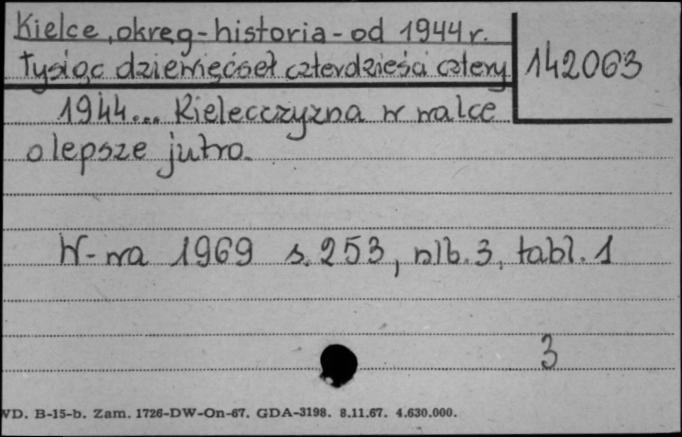 Kielce, okręg - historia - od 1944 r.
tysiąc dziewięćset czterdzieści cztery
142063
1944... Kielecczyzna w walce
o lepsze jutro.
W-wa 1969 s. 253, nlb. 3, tabl. 1
3
WD. B-15-b. Zam. 1726-DW-On-67. GDA-3198. 8.11.67. 4.630.000.